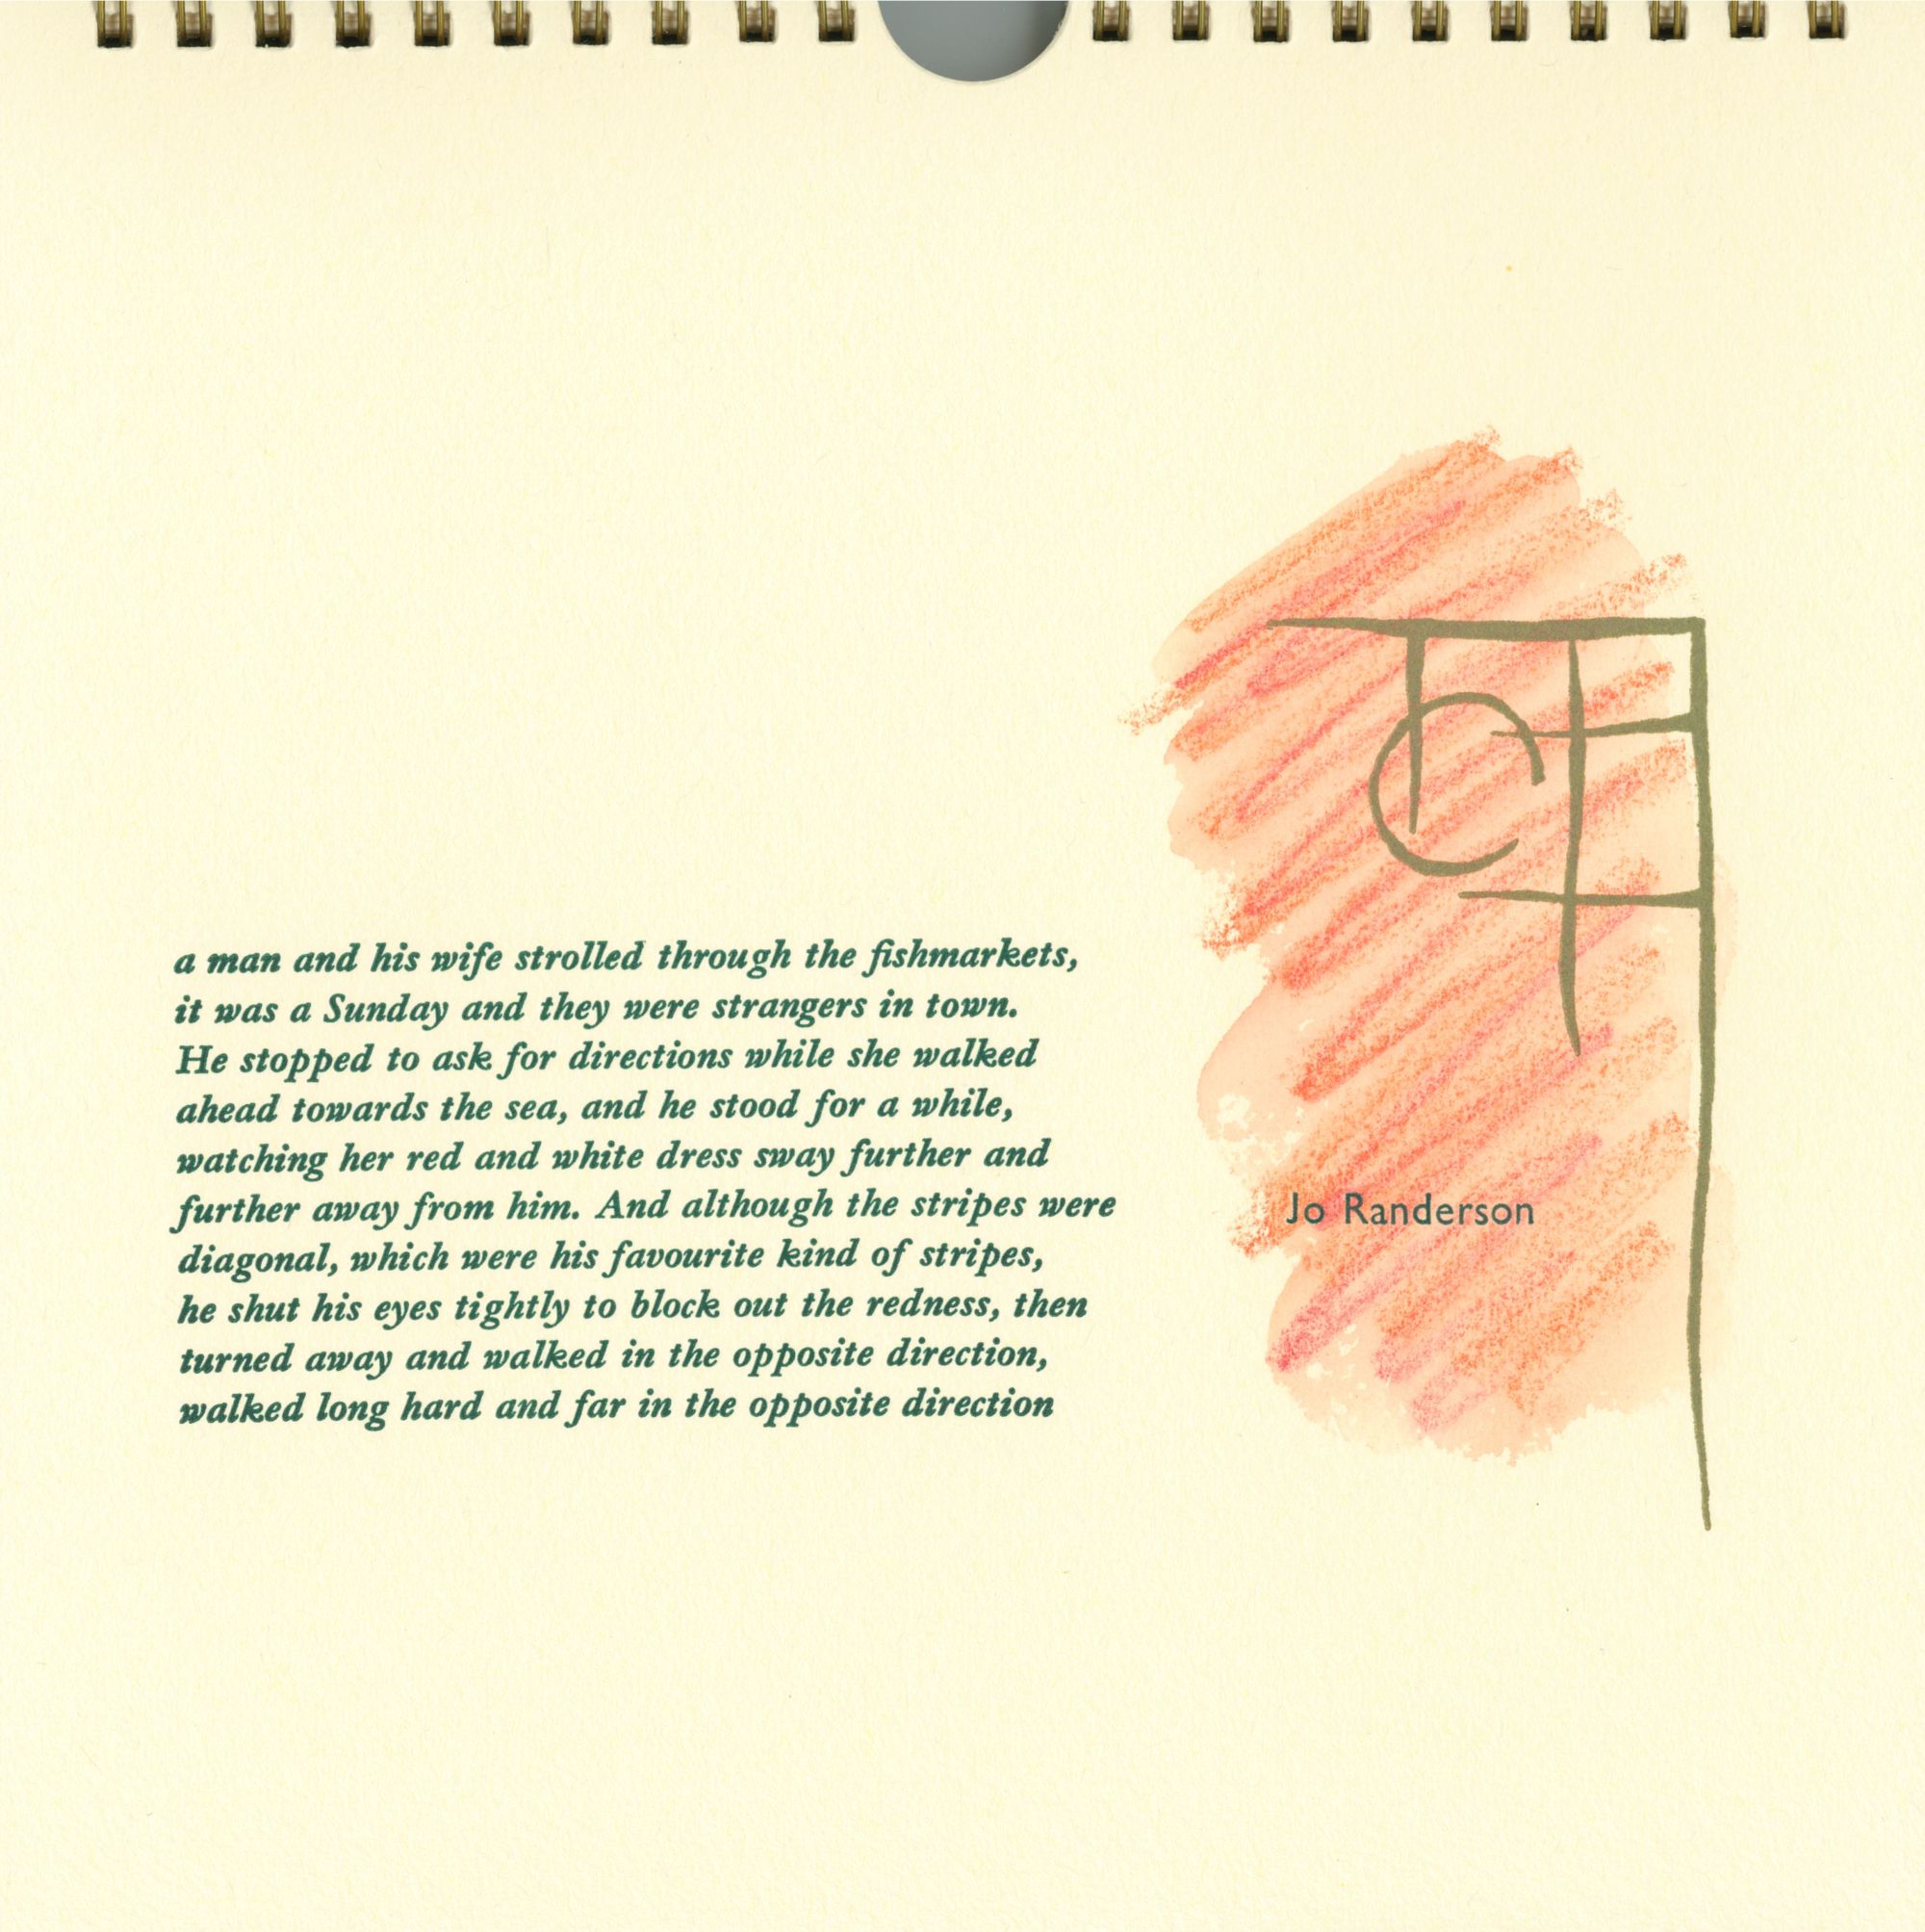 a man and his wife strolled through the fishmarkets,
it was a Sunday and they were strangers in town.
He stopped to ask for directions while she walked
ahead towards the sea, and he stood for a while,
watching her red and white dress sway further and
further away from him. And although the stripes were
diagonal, which were his favourite kind of stripes,
he shut his eyes tightly to block out the redness, then
turned away and walked in the opposite direction,
walked long hard and far in the opposite direction
Jo Randerson